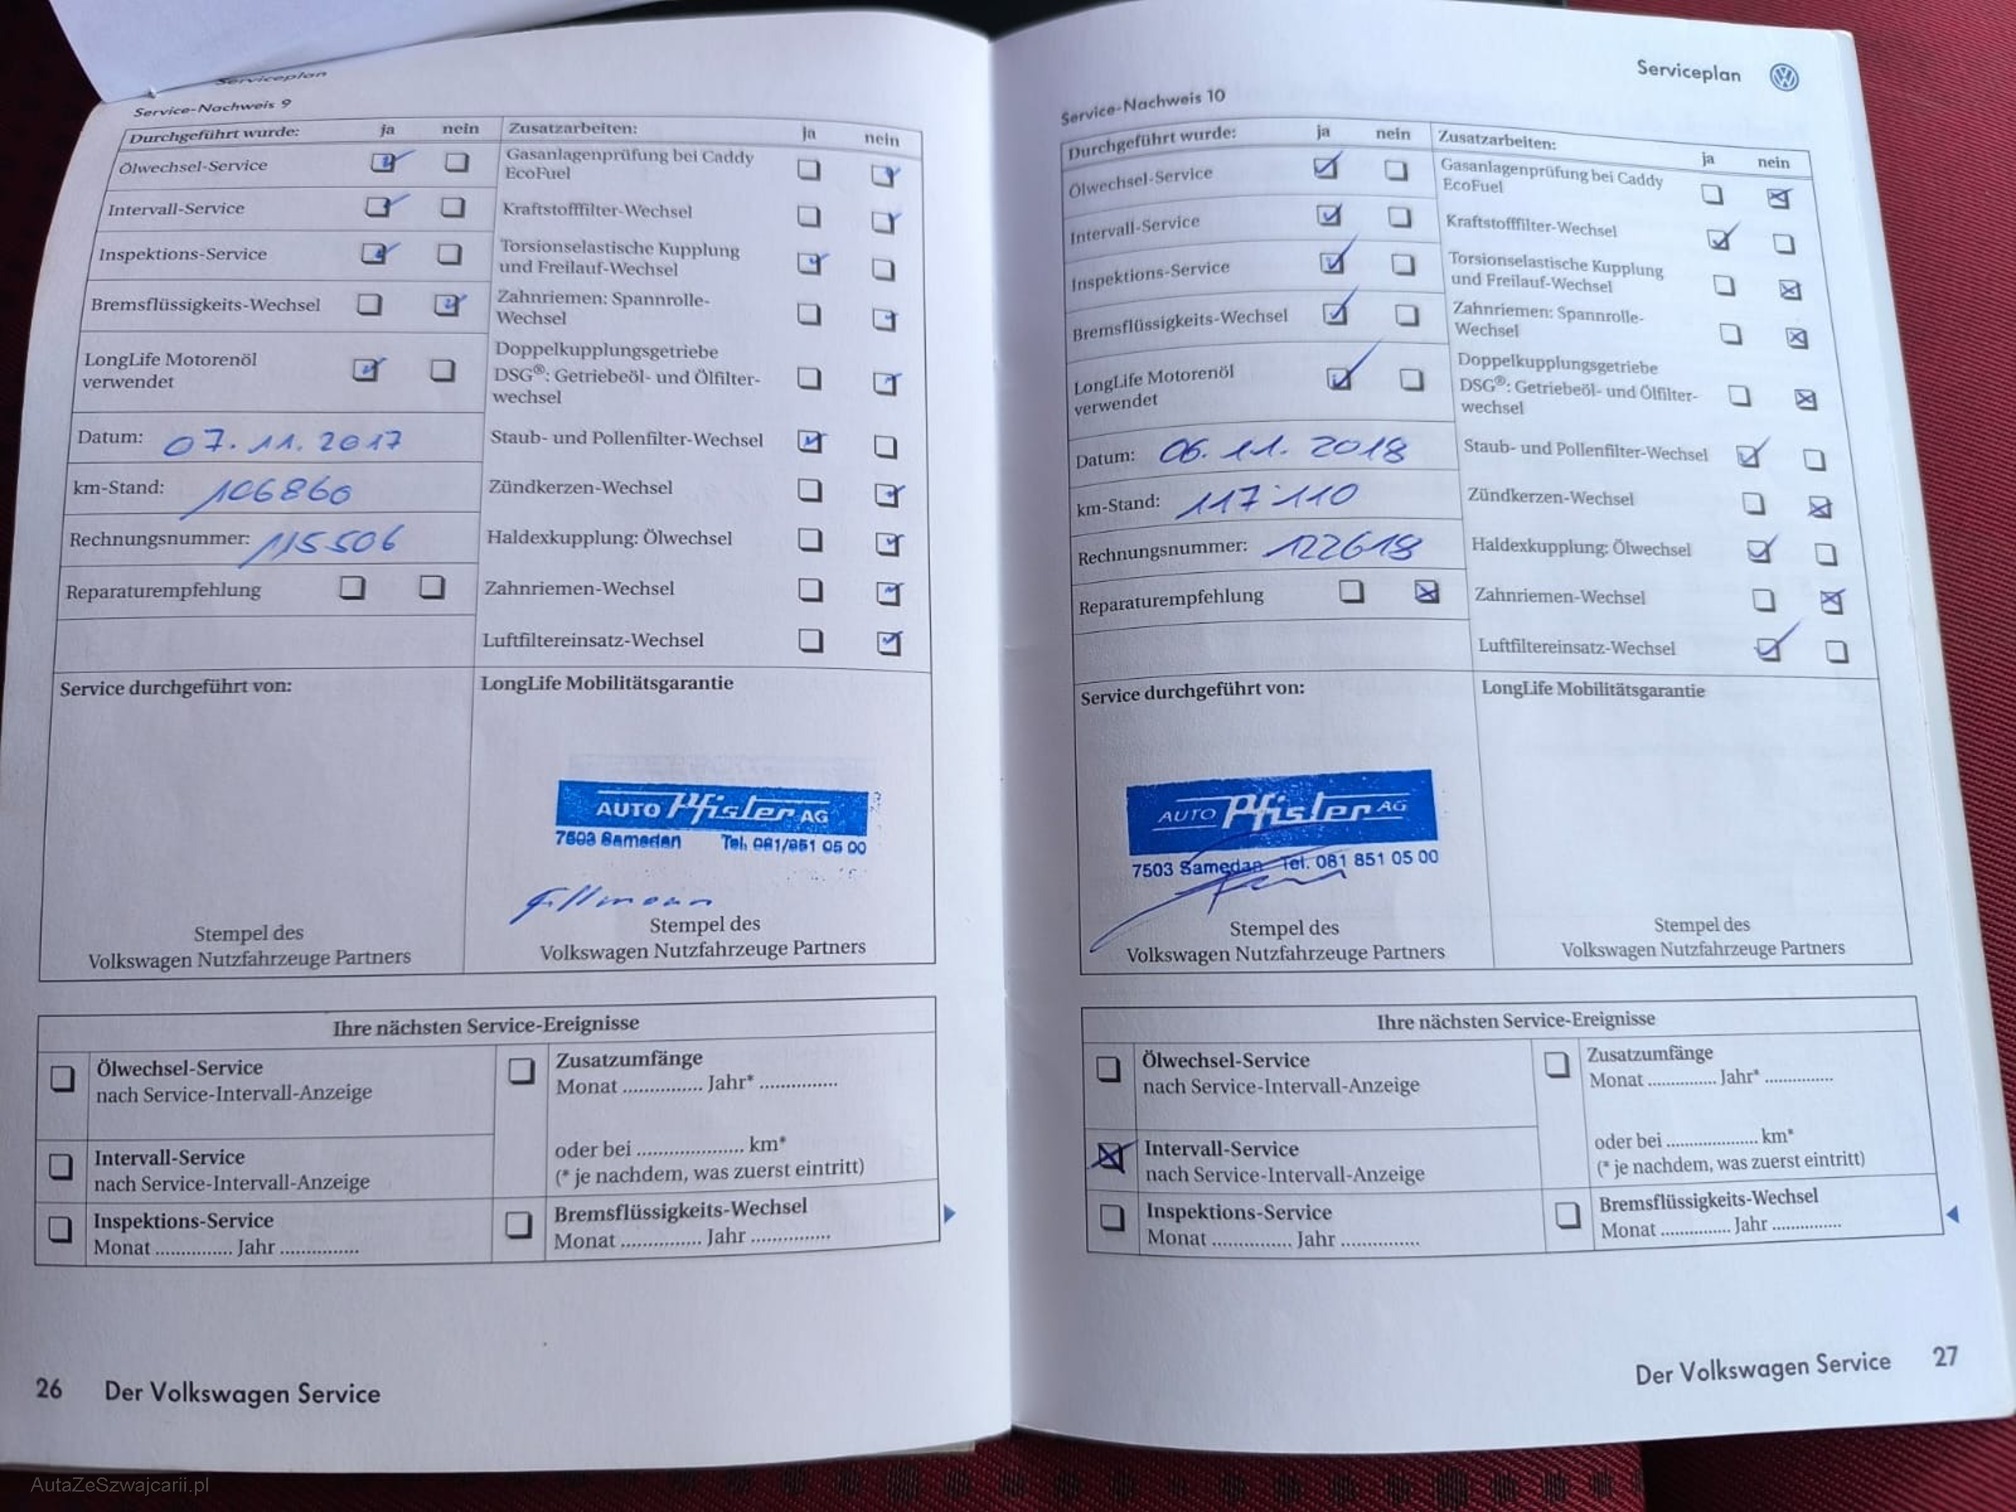 Serviceplan
Service-Nachweis 9
Durchgeführt wurde: ja nein
Ölwechsel-Service
Intervall-Service
Inspektions-Service
Bremsflüssigkeits-Wechsel
LongLife Motorenöl
verwendet
Datum: 07.11.2017
km-Stand: 106860
Rechnungsnummer: 115506
Reparaturempfehlung
Zusatzarbeiten: ja nein
Gasanlagenprüfung bei Caddy
EcoFuel
Kraftstofffilter-Wechsel
Torsionselastische Kupplung
und Freilauf-Wechsel
Zahnriemen: Spannrolle-
Wechsel
Doppelkupplungsgetriebe
DSG®: Getriebeöl- und Ölfilter-
wechsel
Staub- und Pollenfilter-Wechsel
Zündkerzen-Wechsel
Haldexkupplung: Ölwechsel
Zahnriemen-Wechsel
Luftfiltereinsatz-Wechsel
Service durchgeführt von:
Stempel des
Volkswagen Nutzfahrzeuge Partners
LongLife Mobilitätsgarantie
AUTO Pfister AG
7503 Samedan Tel. 081/851 05 00
Stempel des
Volkswagen Nutzfahrzeuge Partners
Ihre nächsten Service-Ereignisse
Ölwechsel-Service
nach Service-Intervall-Anzeige
Intervall-Service
nach Service-Intervall-Anzeige
Inspektions-Service
Monat ............... Jahr ...............
Zusatzumfänge
Monat ............... Jahr* ...............
oder bei .................... km*
(* je nachdem, was zuerst eintritt)
Bremsflüssigkeits-Wechsel
Monat ............... Jahr ...............
26 Der Volkswagen Service
Serviceplan
Service-Nachweis 10
Durchgeführt wurde: ja nein
Ölwechsel-Service
Intervall-Service
Inspektions-Service
Bremsflüssigkeits-Wechsel
LongLife Motorenöl
verwendet
Datum: 06.11.2018
km-Stand: 117'110
Rechnungsnummer: 122618
Reparaturempfehlung
Zusatzarbeiten: ja nein
Gasanlagenprüfung bei Caddy
EcoFuel
Kraftstofffilter-Wechsel
Torsionselastische Kupplung
und Freilauf-Wechsel
Zahnriemen: Spannrolle-
Wechsel
Doppelkupplungsgetriebe
DSG®: Getriebeöl- und Ölfilter-
wechsel
Staub- und Pollenfilter-Wechsel
Zündkerzen-Wechsel
Haldexkupplung: Ölwechsel
Zahnriemen-Wechsel
Luftfiltereinsatz-Wechsel
Service durchgeführt von:
AUTO Pfister AG
7503 Samedan Tel. 081 851 05 00
Stempel des
Volkswagen Nutzfahrzeuge Partners
LongLife Mobilitätsgarantie
Stempel des
Volkswagen Nutzfahrzeuge Partners
Ihre nächsten Service-Ereignisse
Ölwechsel-Service
nach Service-Intervall-Anzeige
Intervall-Service
nach Service-Intervall-Anzeige
Inspektions-Service
Monat ............... Jahr ...............
Zusatzumfänge
Monat ............... Jahr* ...............
oder bei .................... km*
(* je nachdem, was zuerst eintritt)
Bremsflüssigkeits-Wechsel
Monat ............... Jahr ...............
Der Volkswagen Service 27
AutaZeSzwajcarii.pl